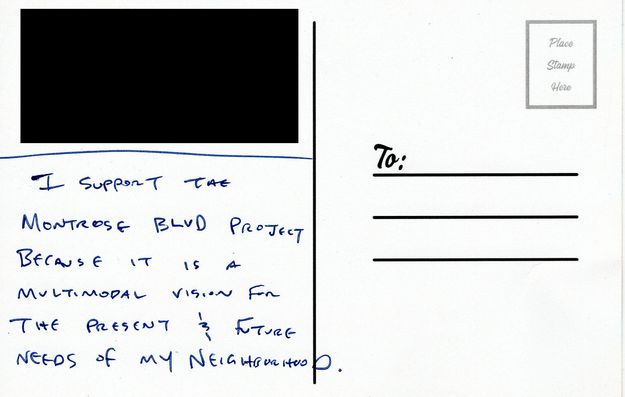 I SUPPORT THE
MONTROSE BLVD PROJECT
BECAUSE IT IS A
MULTIMODAL VISION FOR
THE PRESENT & FUTURE
NEEDS OF MY NEIGHBORHOOD.
Place
Stamp
Here
To: